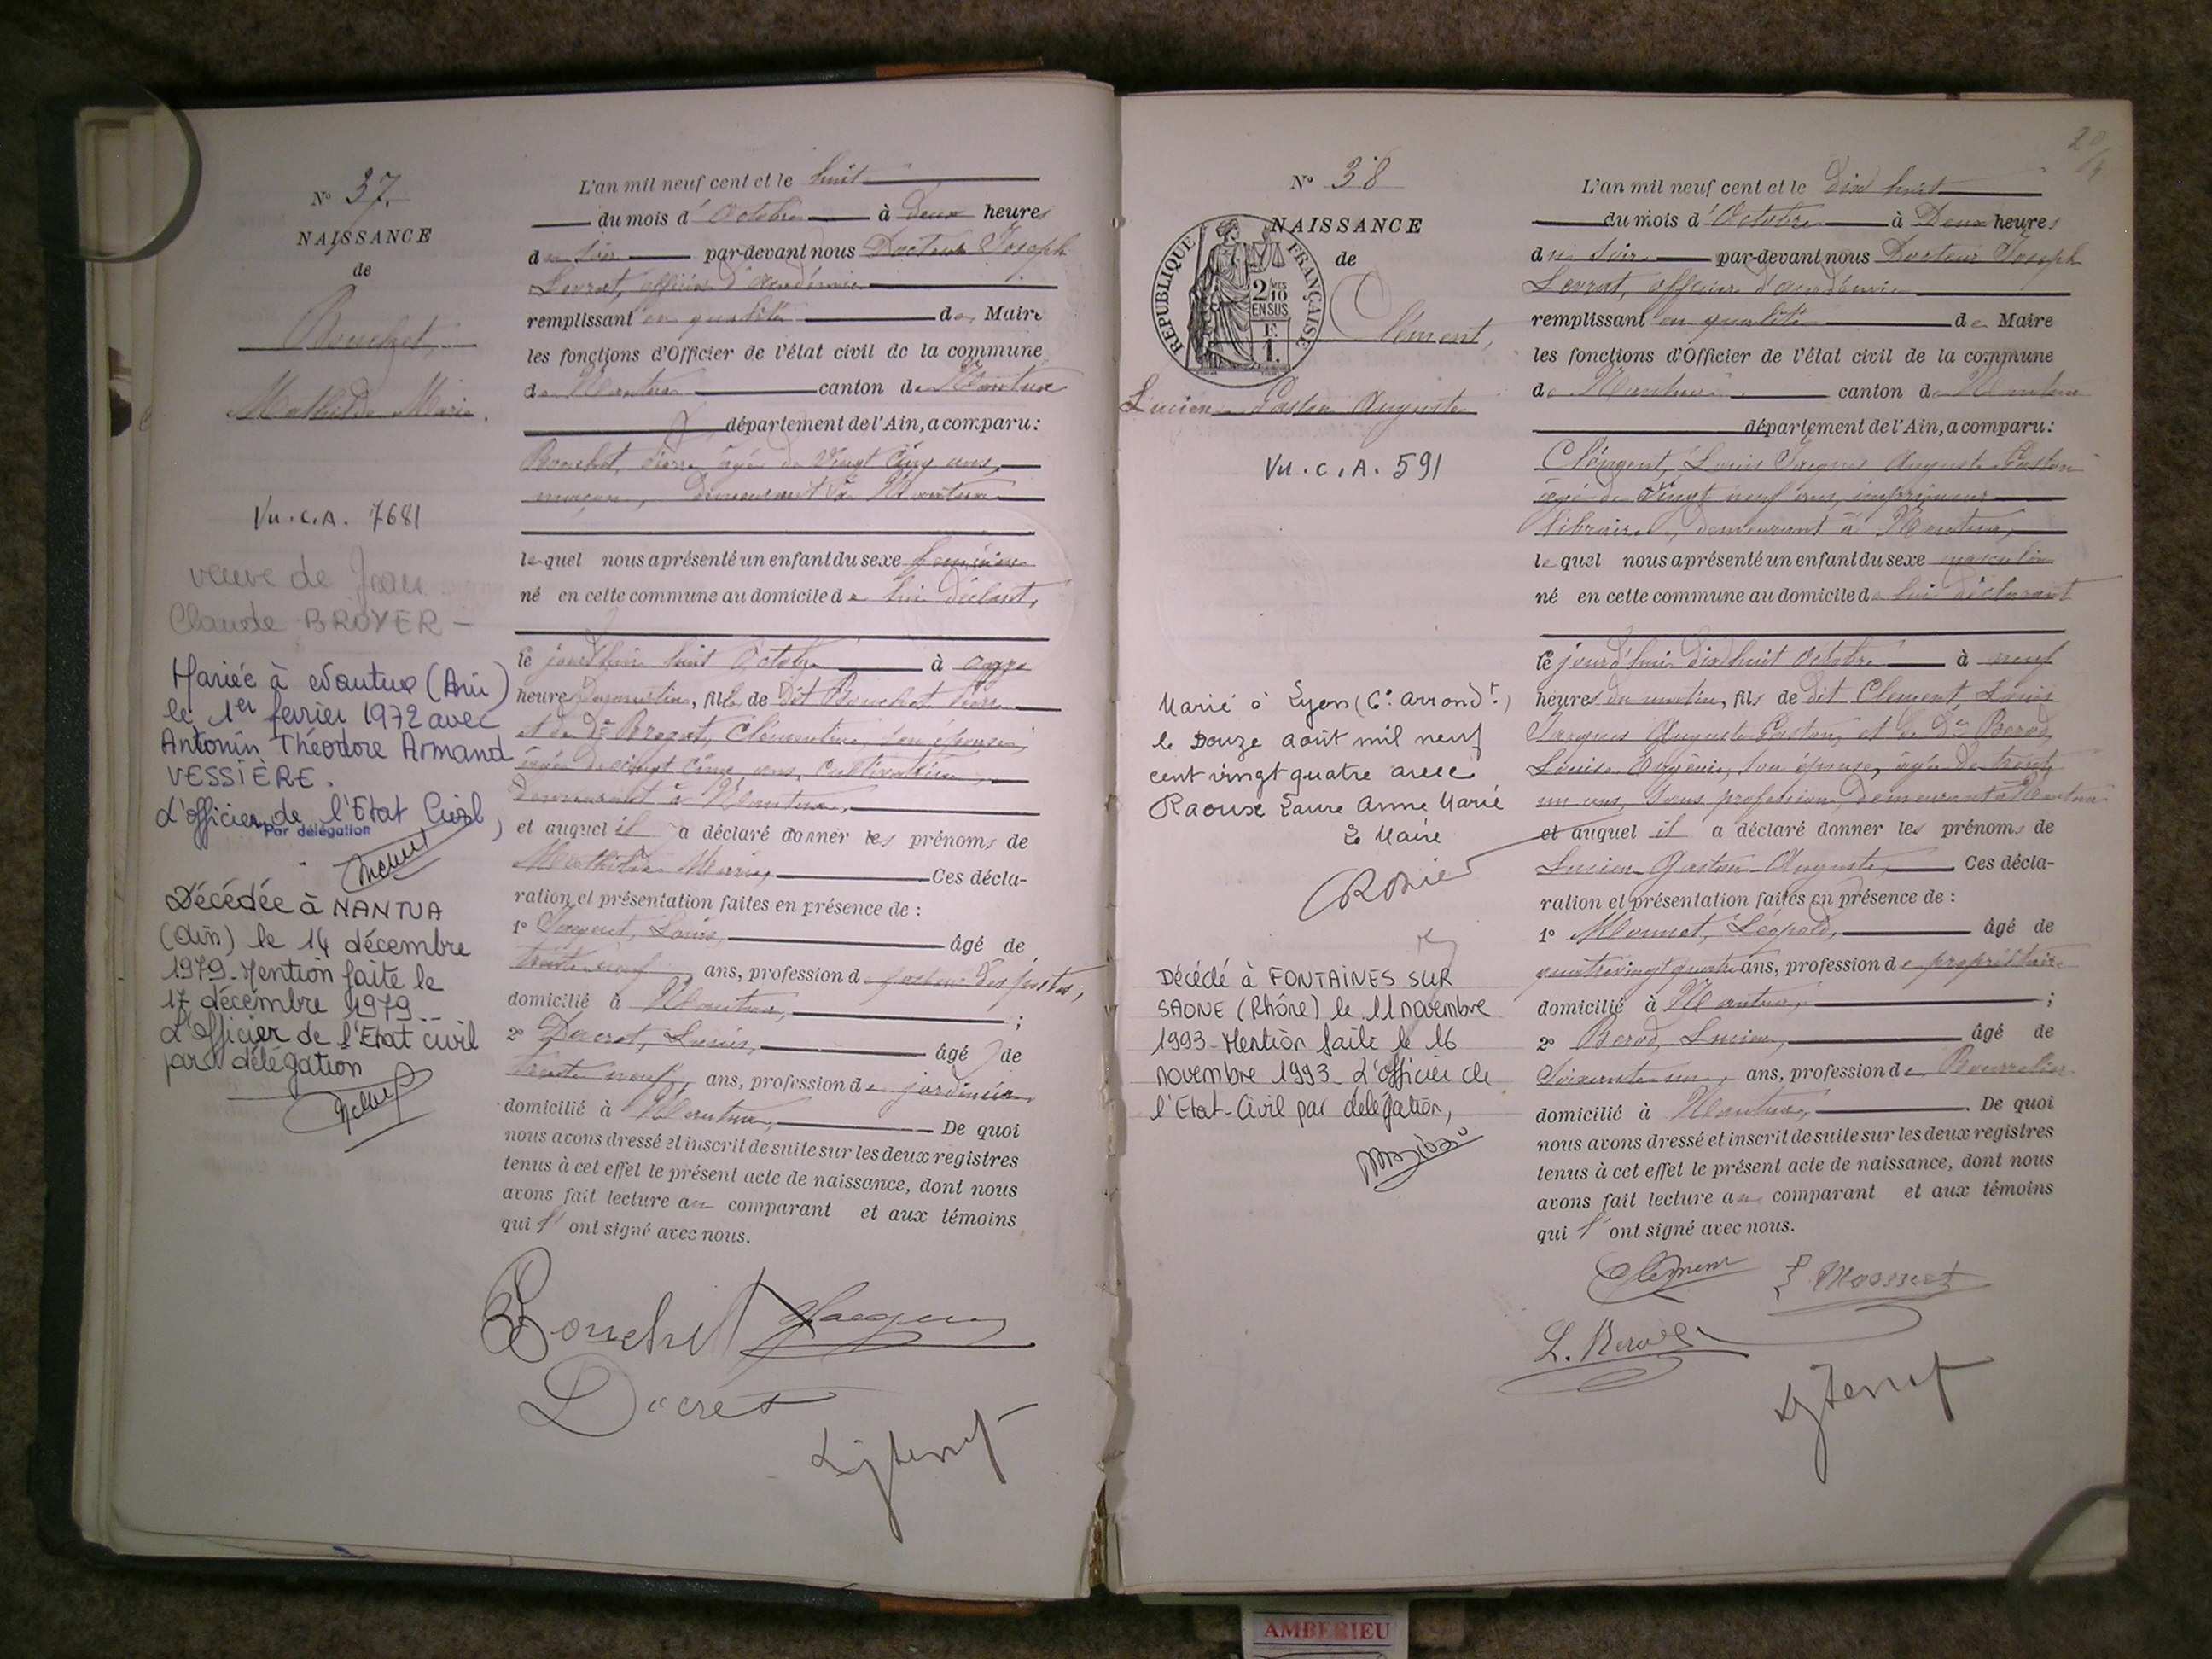 N° 37.
NAISSANCE
de
Bouchet,
Mathilde Marie.
Vu. C. A. 7681
veuve de Jean
Claude BROYER -
Mariée à Nantua (Ain)
le 1er février 1972 avec
Antonin Théodore Armand
VESSIÈRE.
L'officier de l'Etat Civil,
Par délégation
Décédée à NANTUA
(Ain) le 14 décembre
1979. Mention faite le
17 décembre 1979.
L'officier de l'Etat civil
par délégation
L'an mil neuf cent et le huit
du mois d'Octobre à deux heures
du soir par-devant nous Docteur Joseph
officier d'académie
remplissant en qualité de Maire
les fonctions d'Officier de l'état civil de la commune
de Nantua canton de Nantua
département de l'Ain, a comparu :
Bouchet, Pierre âgé de vingt cinq ans,
maçon, demeurant à Nantua
lequel nous a présenté un enfant du sexe féminin
né en cette commune au domicile de lui déclarant,
le jourd'hui huit Octobre à onze
heures du matin, fille de dit Bouchet Pierre
et de De Clémentine, son épouse,
âgée de vingt cinq ans, cultivatrice,
demeurant à Nantua,
et auquel il a déclaré donner les prénoms de
Mathilde Marie, Ces décla-
ration et présentation faites en présence de :
1° Louis, âgé de
trente neuf ans, profession de facteur des postes,
domicilié à Nantua, ;
2° Ducret, Louis, âgé de
trente neuf, ans, profession de jardinier,
domicilié à Nantua, De quoi
nous avons dressé et inscrit de suite sur les deux registres
tenus à cet effet le présent acte de naissance, dont nous
avons fait lecture au comparant et aux témoins
qui l'ont signé avec nous.
Bouchet
Ducret
20
N° 38
NAISSANCE
de
RÉPUBLIQUE FRANÇAISE
2/10 EN SUS
F. 1.
Clément,
Lucien Gaston Auguste
Vu. C. A. 591
Marié à Lyon (6e arrondt.)
le Douze août mil neuf
cent vingt quatre avec
Raoux Laure Anne Marie
Le Maire
Décédé à FONTAINES SUR
SAONE (Rhône) le 11 novembre
1993 - Mention faite le 16
novembre 1993. L'officier de
l'Etat-Civil par délégation,
L'an mil neuf cent et le Dix huit
du mois d'Octobre à Deux heures
du soir par-devant nous Docteur Joseph
officier d'académie
remplissant en qualité de Maire
les fonctions d'Officier de l'état civil de la commune
de Nantua canton de Nantua
département de l'Ain, a comparu :
Clément, Louis Jacques Auguste Gaston
âgé de vingt neuf ans, imprimeur
libraire, demeurant à Nantua,
lequel nous a présenté un enfant du sexe masculin
né en cette commune au domicile de lui déclarant
le jourd'hui dix huit Octobre à neuf
heures du matin, fils de dit Clément, Louis
Jacques Auguste Gaston, et de De Berod
Louise Eugénie, son épouse, âgée de trente
un ans, sans profession, demeurant à Nantua
et auquel il a déclaré donner les prénoms de
Lucien Gaston Auguste, Ces décla-
ration et présentation faites en présence de :
1° Monnet, Léopold, âgé de
quatrevingt quatre ans, profession de propriétaire
domicilié à Nantua, ;
2° Berod, Lucien, âgé de
Soixante un, ans, profession de Bourrelier
domicilié à Nantua, De quoi
nous avons dressé et inscrit de suite sur les deux registres
tenus à cet effet le présent acte de naissance, dont nous
avons fait lecture au comparant et aux témoins
qui l'ont signé avec nous.
Clément
L. Berod
AMBERIEU